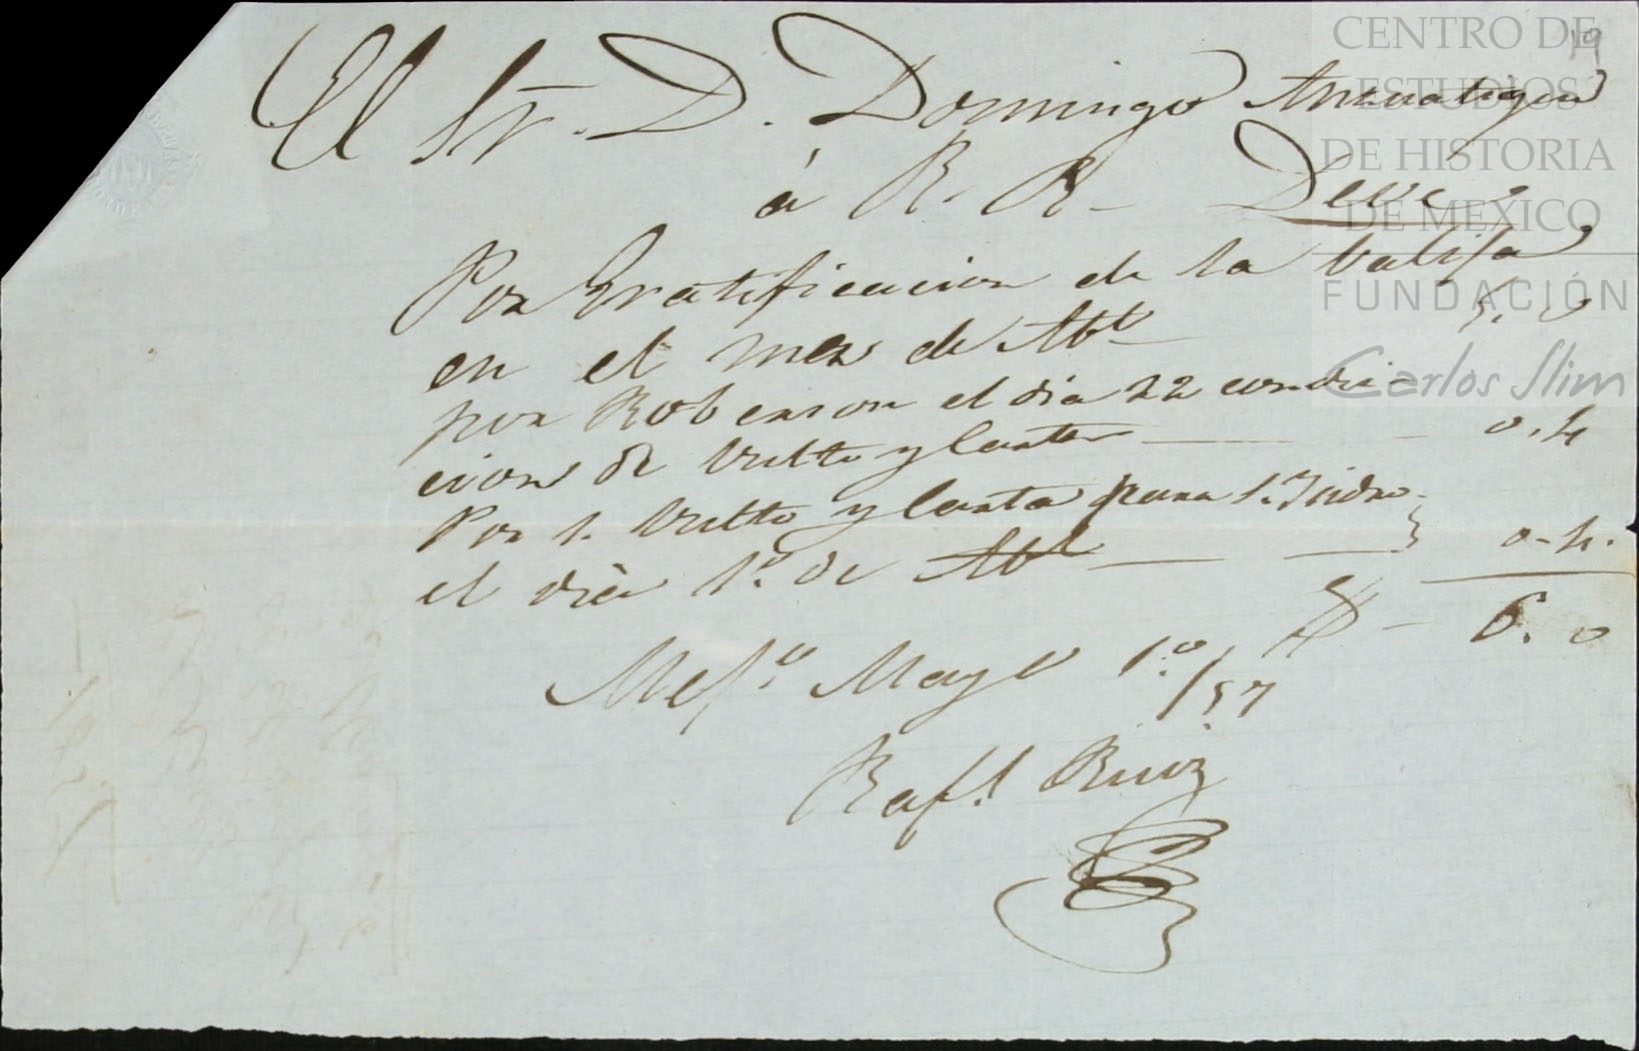 19
El Sr. D. Domingo Ansuategui
á R. R. Deve
Por Gratificacion de la balisa
en el mes de Abl 5. 0
por Roberson el dia 22 condu-
cion de bulto y carta 0. 4
Por 1. bulto y carta para S. Isidro
el dia 1º. de Abl 0-4.
$ - 6. 0
Mejº. Mayo 1º./57
Rafl. Ruiz
CENTRO DE
ESTUDIOS
DE HISTORIA
DE MEXICO
FUNDACIÓN
Carlos Slim